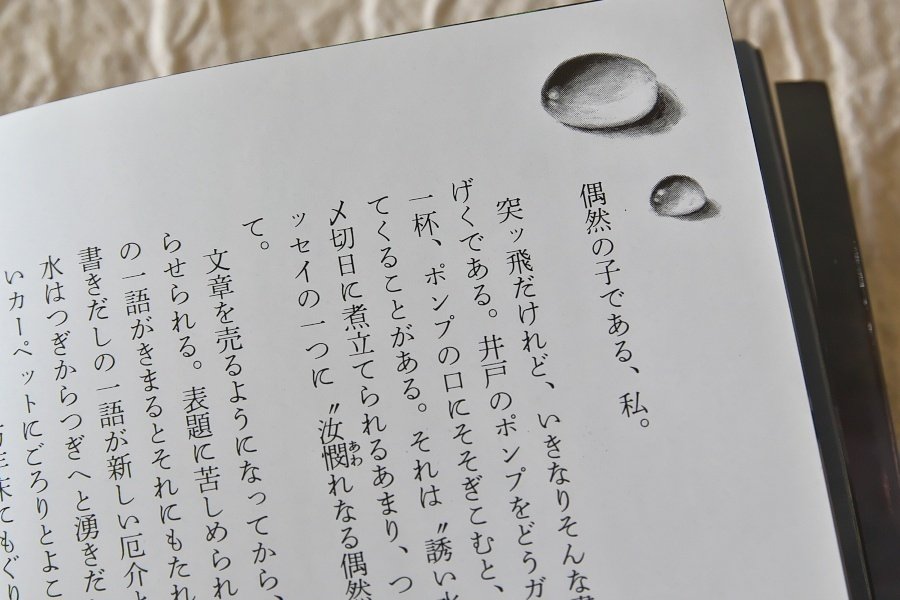 偶然の子である、私。
突ッ飛だけれど、いきなりそんな書
げくである。井戸のポンプをどうガ
一杯、ポンプの口にそそぎこむと、
てくることがある。それは〝誘い水
〆切日に煮立てられるあまり、つ
ッセイの一つに〝汝憫れなる偶然
あわ
て。
文章を売るようになってから、
らせられる。表題に苦しめられ
の一語がきまるとそれにもたれ
書きだしの一語が新しい厄介と
水はつぎからつぎへと湧きだ
いカーペットにごろりとよこ
末てもぐり